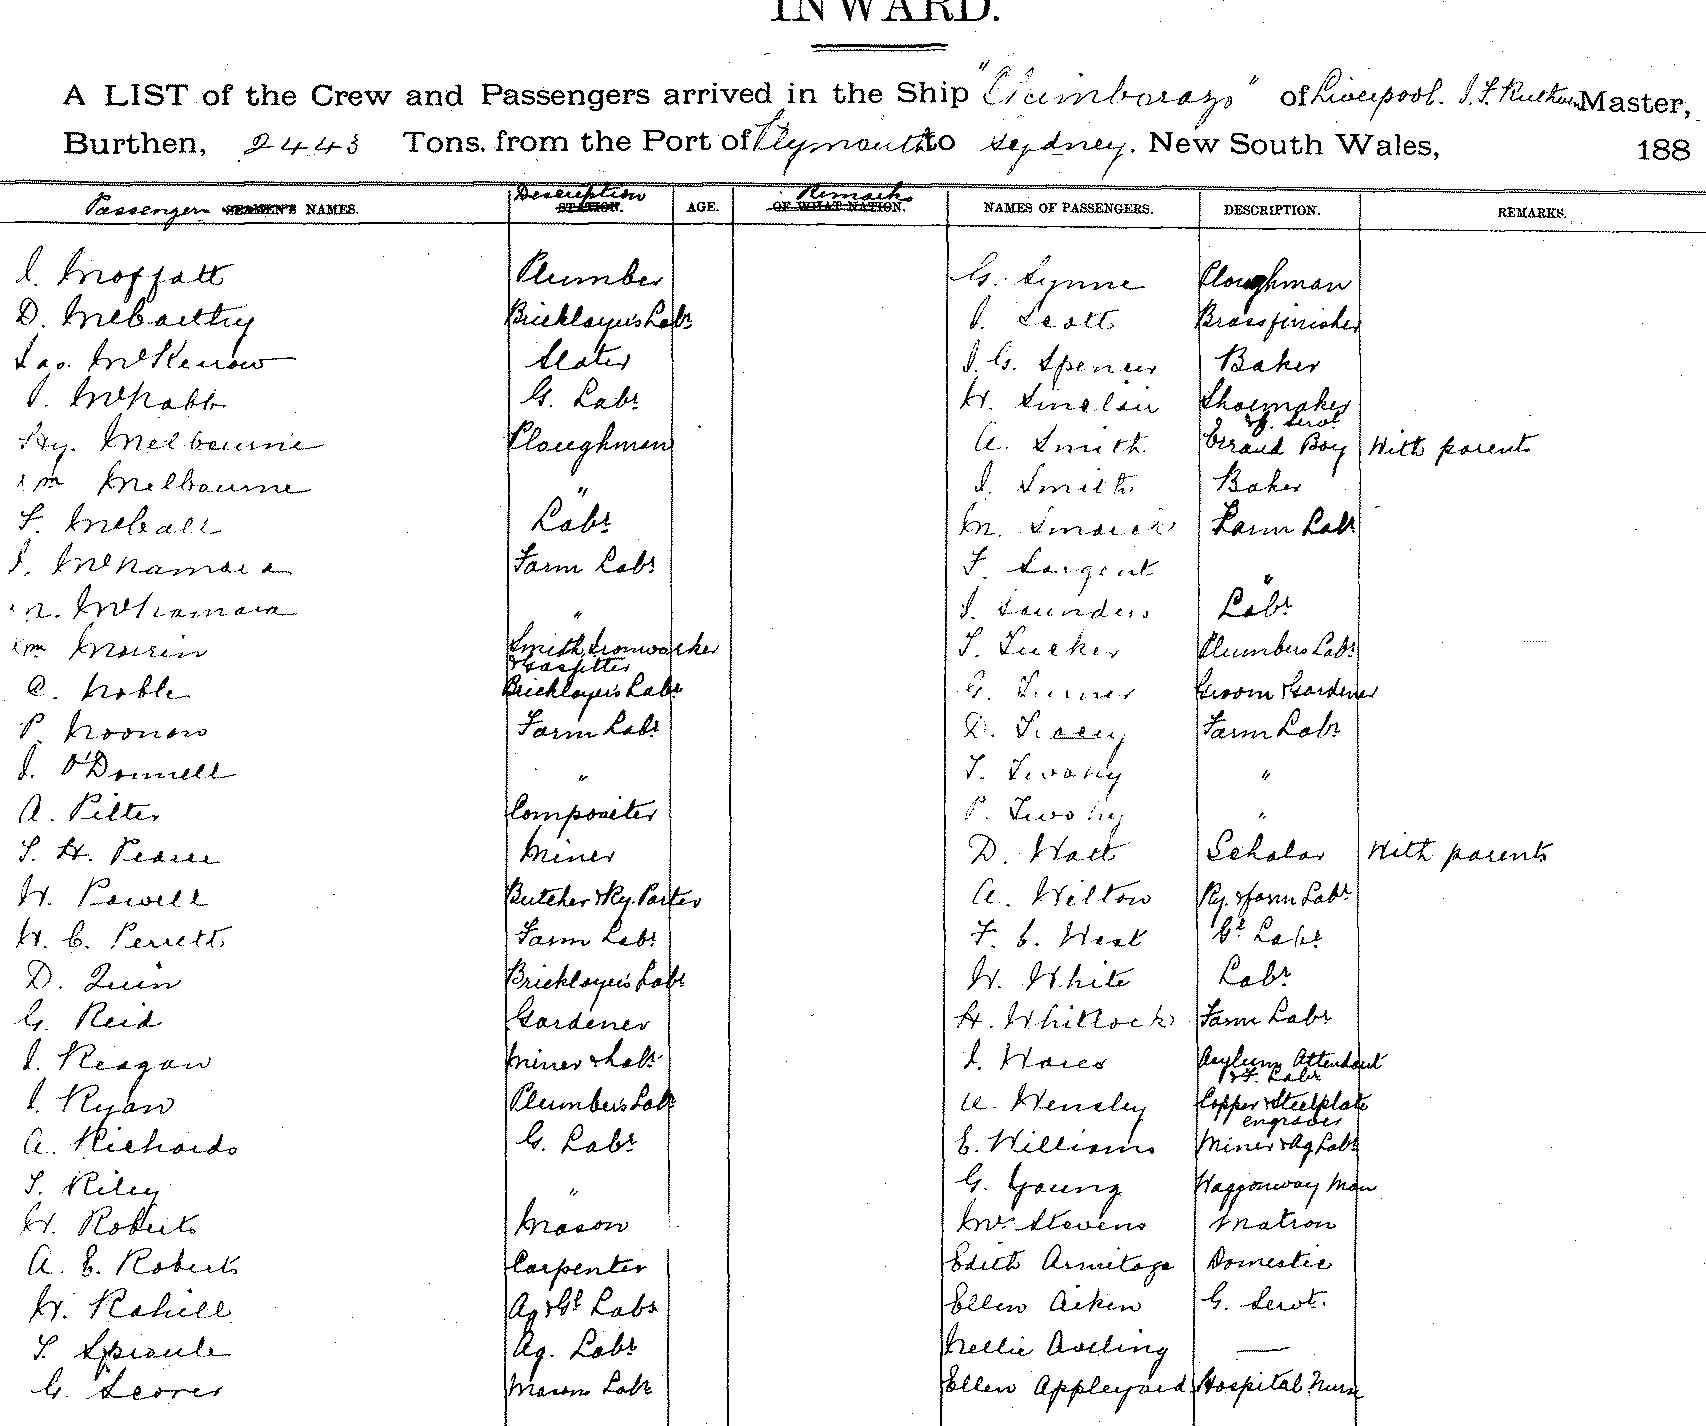 INWARD.
A LIST of the Crew and Passengers arrived in the Ship "Chimborazo" of Liverpool. J. F. Ruthven Master,
Burthen, 2443 Tons. from the Port of Plymouth to Sydney. New South Wales, 188
Passenger SEAMEN'S NAMES. Description STATION. AGE. Remarks OF WHAT NATION. NAMES OF PASSENGERS. DESCRIPTION. REMARKS.
J. Moffatt Plumber G. Synne Ploughman
D. McCarthy Bricklayers Labr J. Scott Brassfinisher
Jas. McKenow Slater J. G. Spencer Baker
J. McNabb G. Labr W. Sinclair Shoemaker
Hy. Melbourne Ploughman A. Smith Errand Boy & f. Servt With parents
Wm Melbourne " J. Smith Baker
F. McCall Labr M. Farm Labr
J. McNamara Farm Labr F. Sargent "
McNamara " J. Saunders Labr
Wm Smith, Ironworker & Gasfitter T. Tucker Plumbers Labr
C. Noble Bricklayers Labr G. Turner Groom & Gardener
P. Noonan Farm Labr D. Tracey Farm Labr
J. O'Donnell " T. Twohy "
A. Pilter Compositer P. Twohy "
S. H. Pearse Miner D. Watt Scholar With parents
W. Powell Butcher & Ry. Porter A. Wilton Ry. & farm Labr
W. C. Perrett Farm Labr F. C. West Gl Labr
D. Quin Bricklayers Labr W. White Labr
G. Reid Gardener H. Whitlock Farm Labr
J. Reagan Miner & Labr J. Asylum Attendant & F. Labr
J. Ryan Plumbers Labr A. Wensley Copper & Steelplate engraver
A. Richards G. Labr E. Williams Miner & Ag Labr
T. Riley " G. Young Waggonway Man
W. Roberts Mason Mrs Stevens Matron
A. E. Roberts Carpenter Edith Armitage Domestic
W. Rahill Ag & Gl Labr Ellen Aiken G. Servt.
T. Sproule Ag. Labr Nellie Aveling —
G. Scorer Masons Labr Ellen Appleyard Hospital Nurse